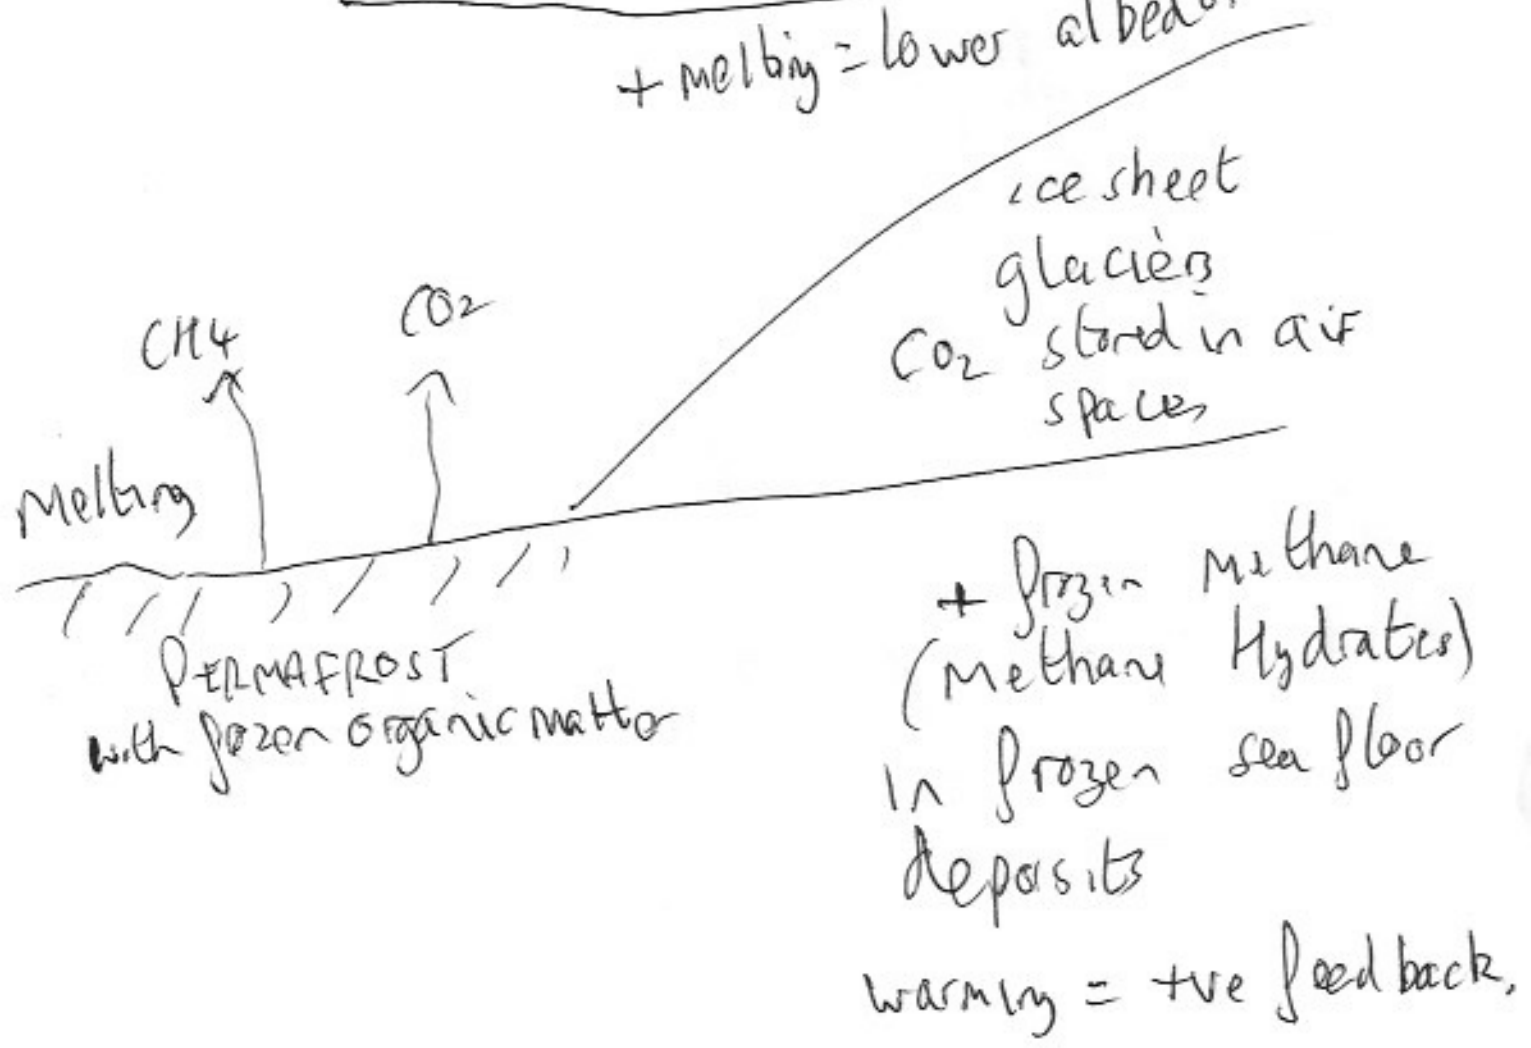 + melting = lower albedo.
ice sheet
glaciers
CO2 stored in air
spaces
CH4
CO2
Melting
PERMAFROST
with frozen organic matter
+ frozen Methane
(Methane Hydrates)
in frozen sea floor
deposits
warming = +ve feedback.